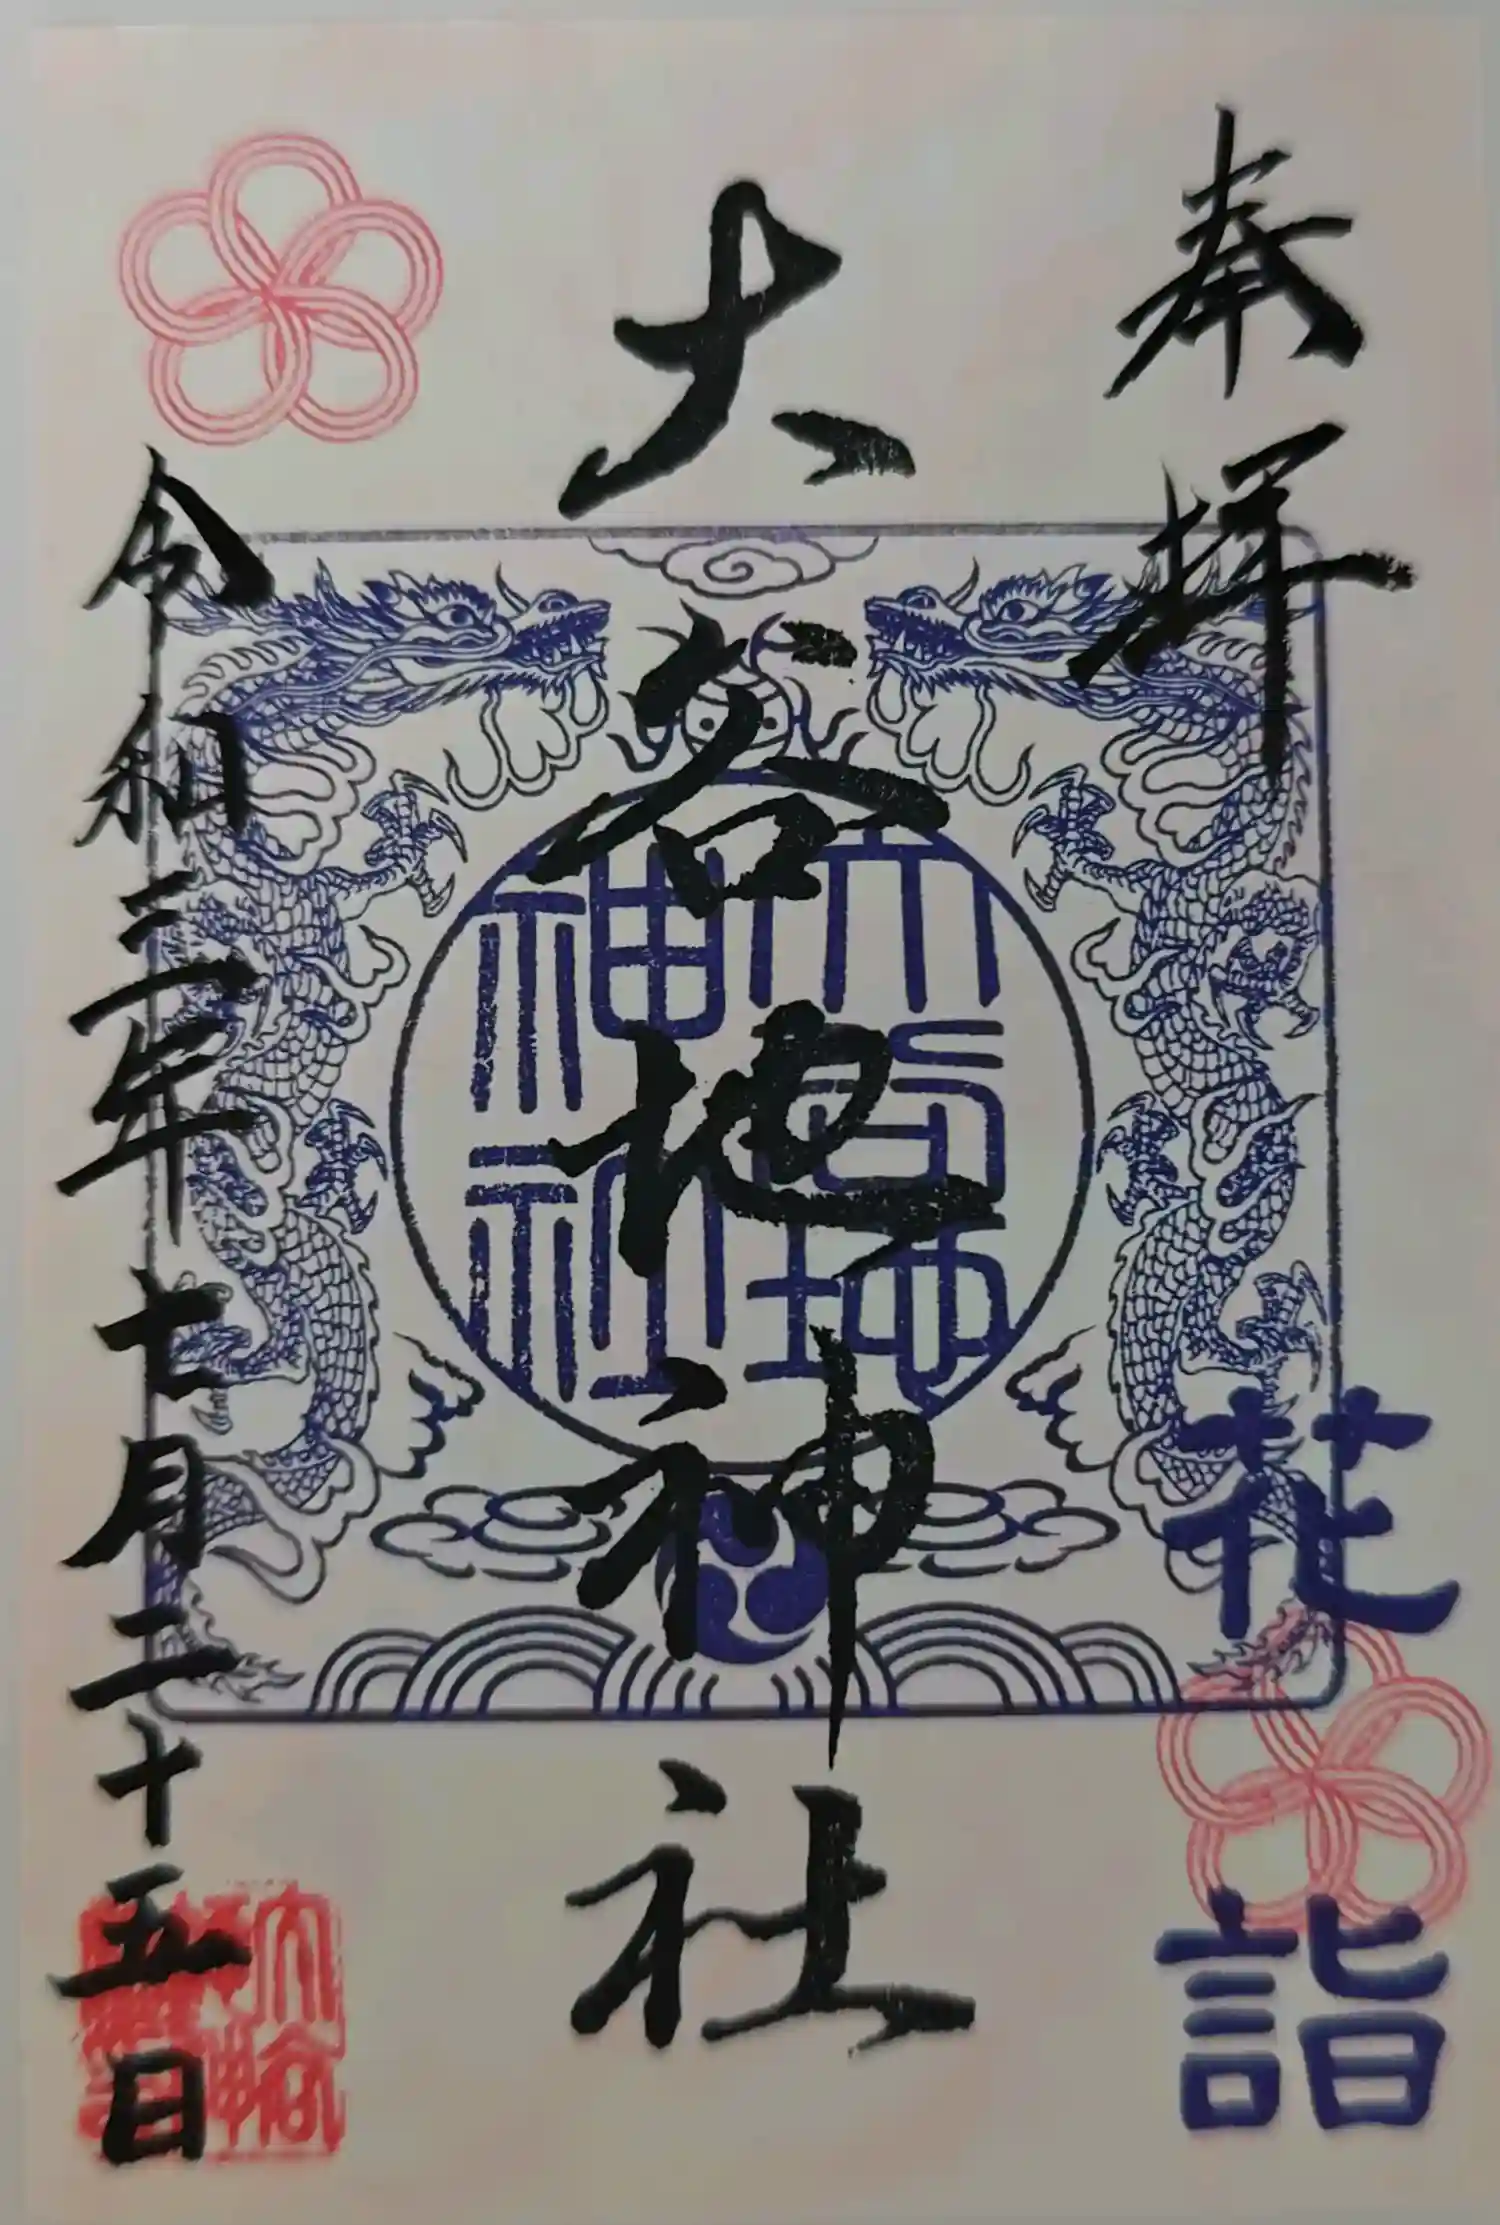 奉拝
花詣
大谷地神社
大谷地
神社
令和三年七月二十五日